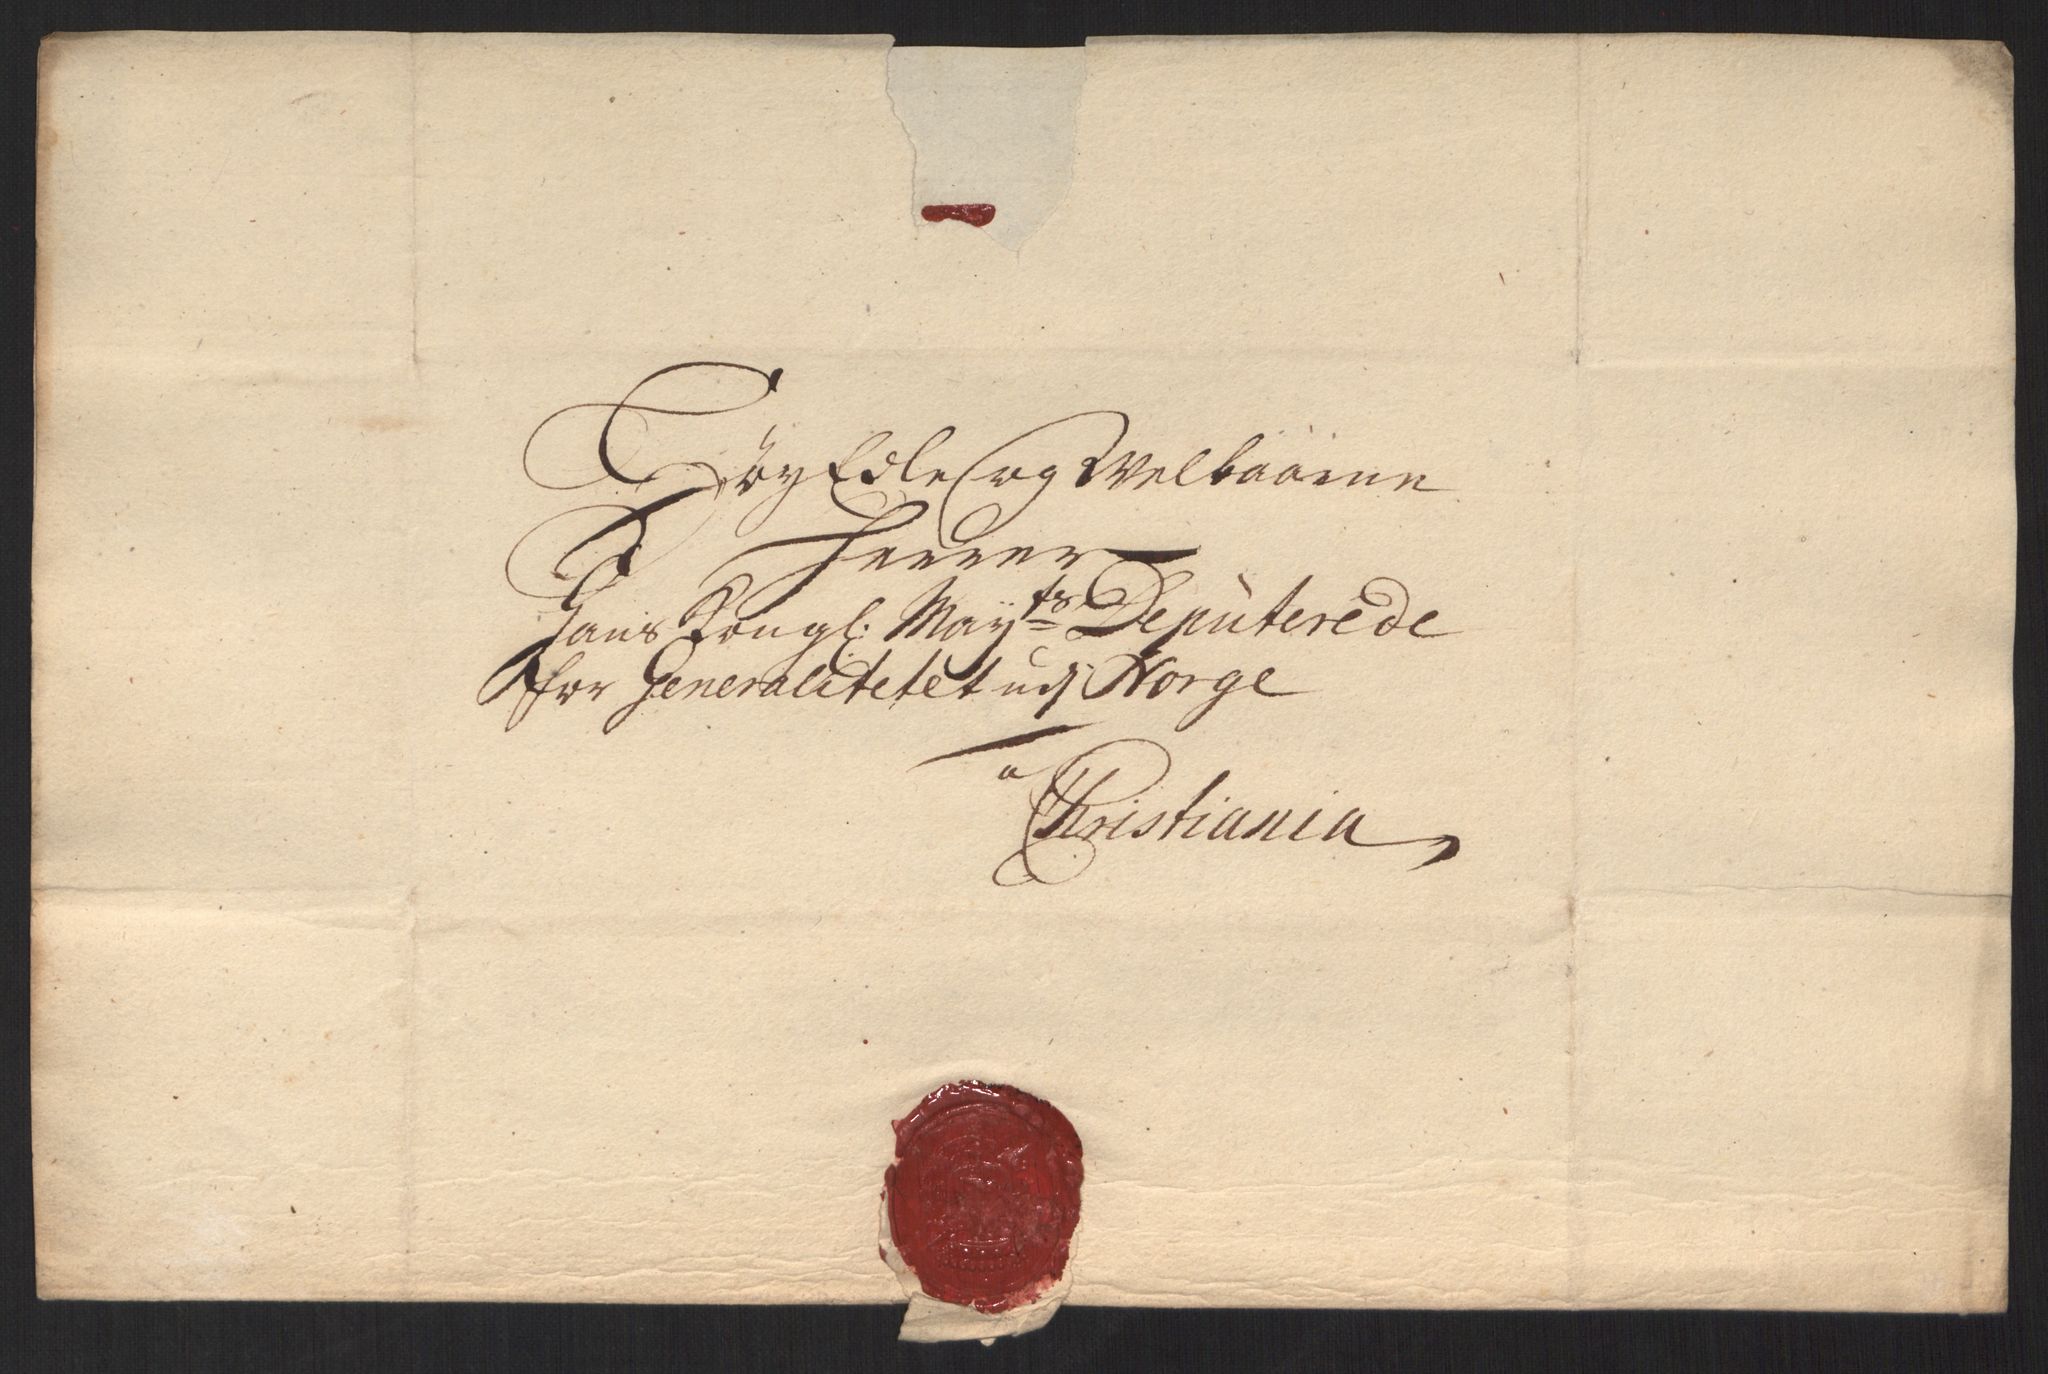 HöyEdle og Velbaarne
Herrer
Hans Kongl: Mayts Deputerede
for Generalitetet udj Norge
a
Christiania